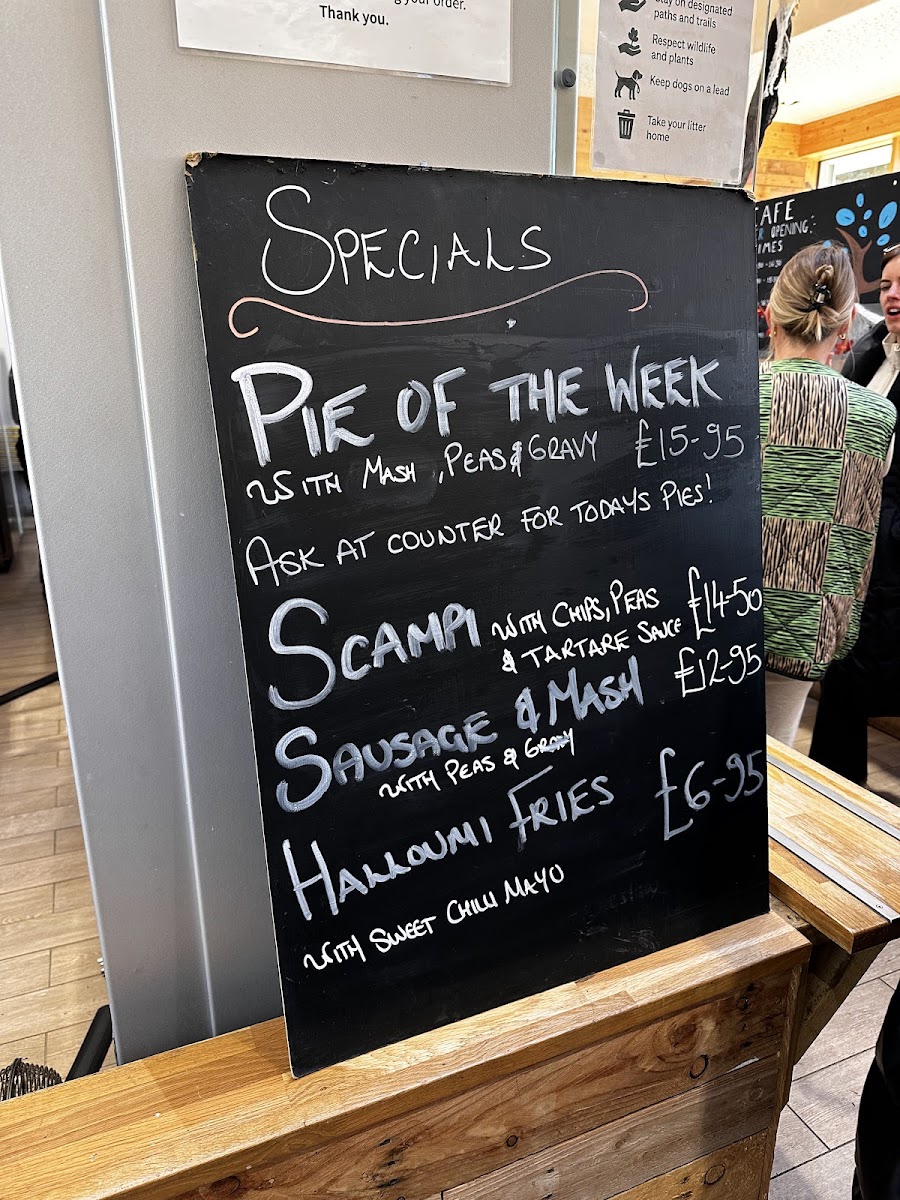 your order.
Thank you.
Stay on designated
paths and trails
Respect wildlife
and plants
Keep dogs on a lead
Take your litter
home
AFE
OPENING
IMES
SPECIALS
PIE OF THE WEEK
WITH MASH, PEAS & GRAVY £15-95
ASK AT COUNTER FOR TODAYS PIES!
SCAMPI WITH CHIPS, PEAS £14-50
& TARTARE SAUCE
SAUSAGE & MASH £12-95
WITH PEAS & GRAVY
HALLOUMI FRIES £6-95
WITH SWEET CHILLI MAYO